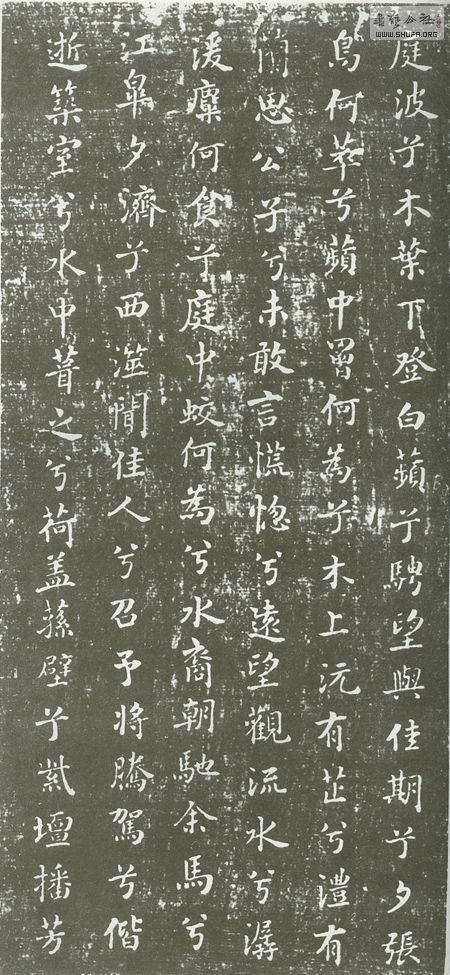 庭波兮木葉下登白蘋兮騁望與佳期兮夕張
鳥何萃兮蘋中罾何為兮木上沅有芷兮澧有
蘭思公子兮未敢言慌惚兮遠望觀流水兮潺
湲麋何食兮庭中蛟何為兮水裔朝馳余馬兮
江皋夕濟兮西澨聞佳人兮召予將騰駕兮偕
逝築室兮水中葺之兮荷盖蓀壁兮紫壇播芳
WWW.SHUFA.ORG